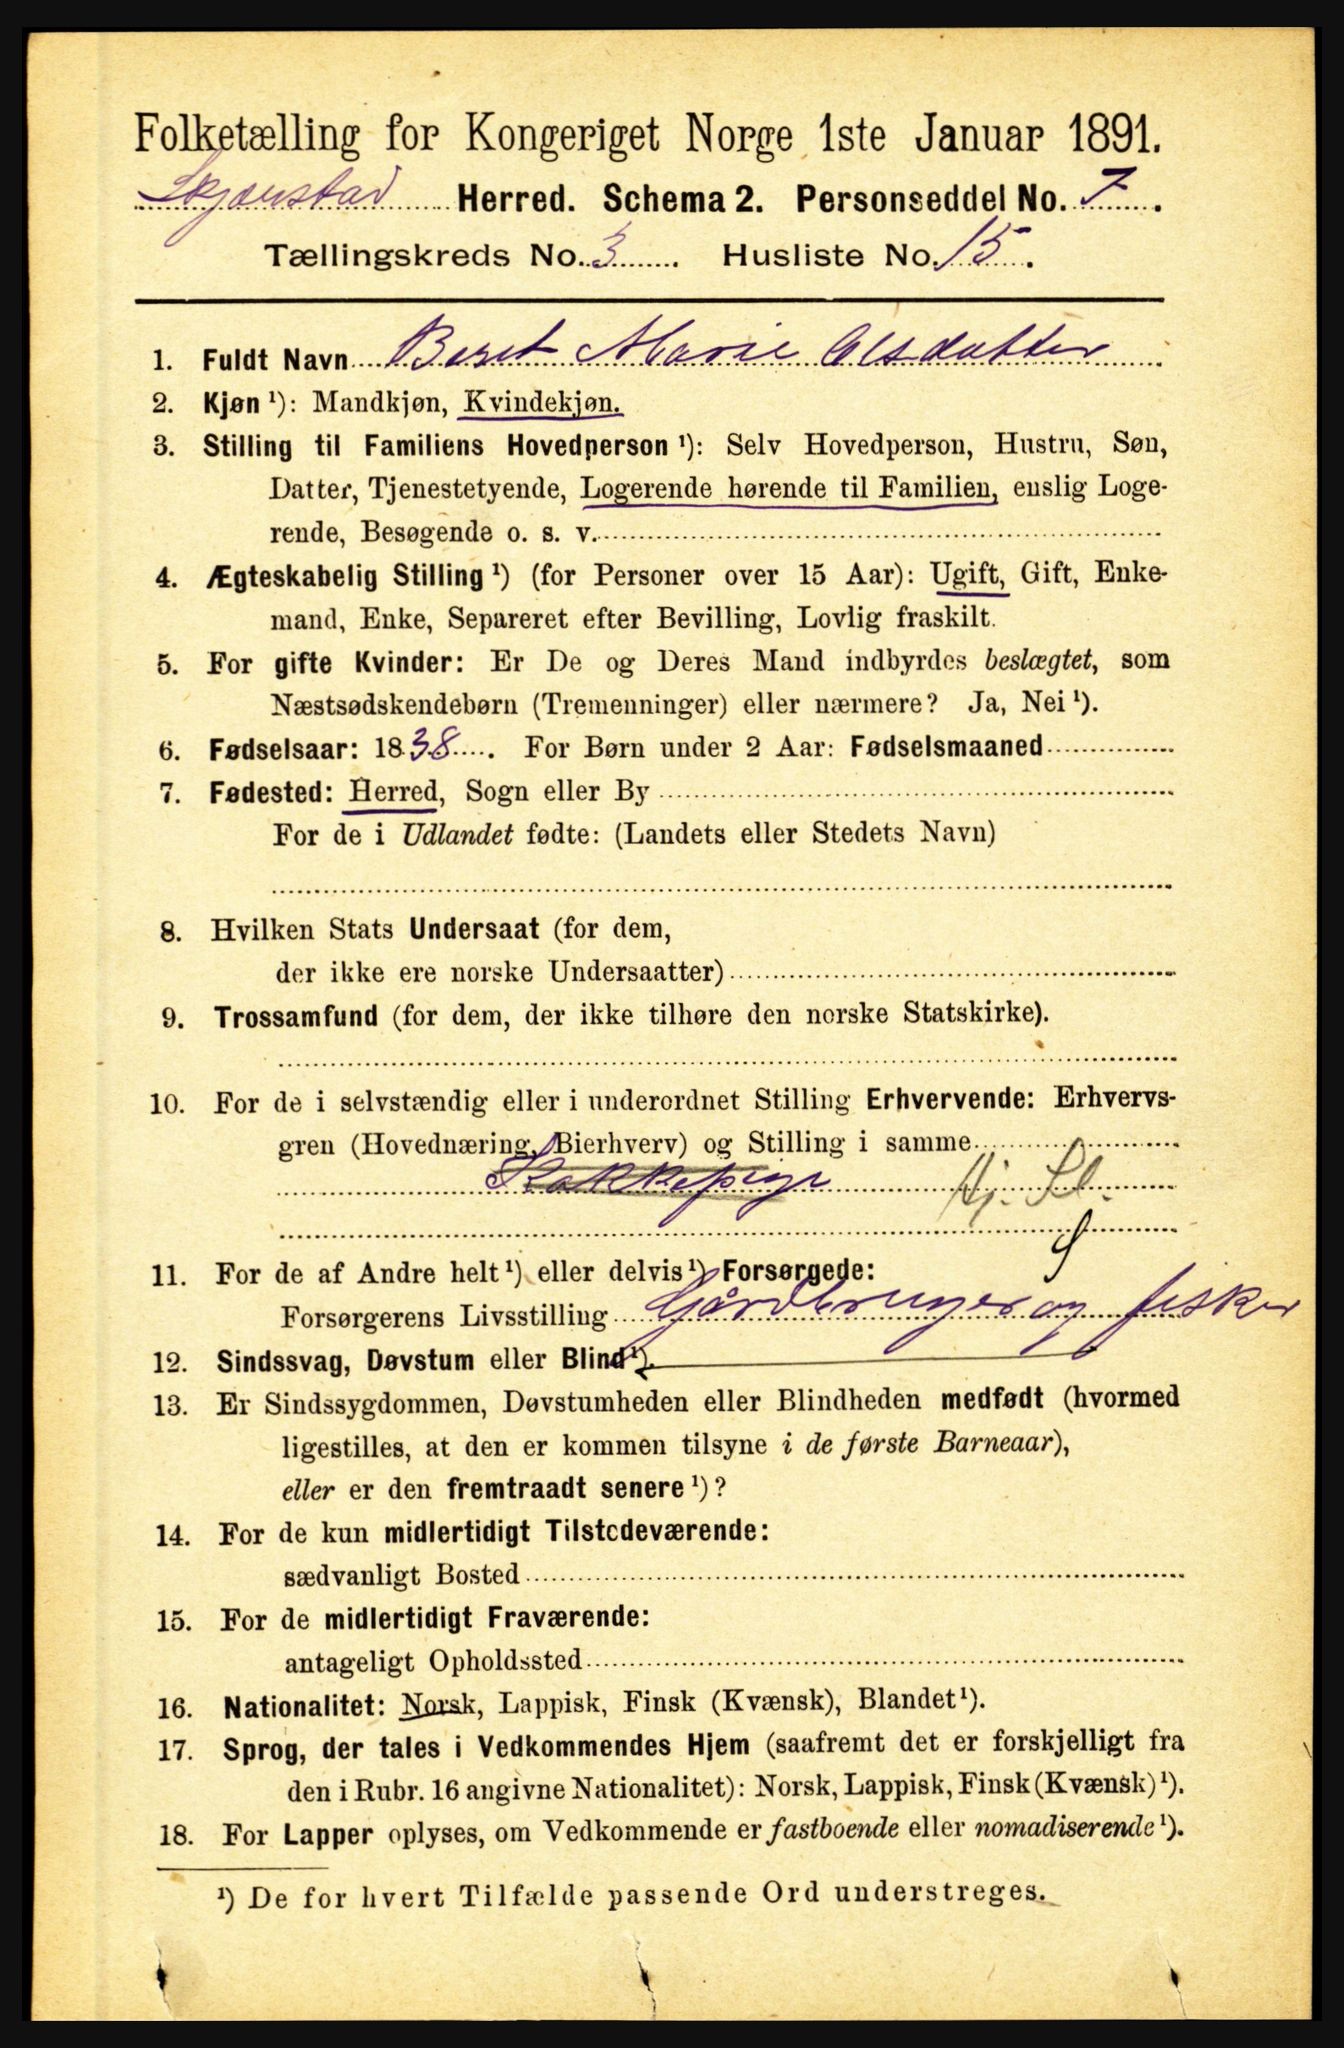 Folketælling for Kongeriget Norge 1ste Januar 1891.
Skjærstad Herred. Schema 2. Personseddel No. 7.
Tællingskreds No. 3. Husliste No. 15.
1. Fuldt Navn Beret Marie Olsdatter
2. Kjøn ¹): Mandkjøn, Kvindekjøn.
3. Stilling til Familiens Hovedperson ¹): Selv Hovedperson, Hustru, Søn,
Datter, Tjenestetyende, Logerende hørende til Familien, enslig Loge-
rende, Besøgende o. s. v.
4. Ægteskabelig Stilling ¹) (for Personer over 15 Aar): Ugift, Gift, Enke-
mand, Enke, Separeret efter Bevilling, Lovlig fraskilt.
5. For gifte Kvinder: Er De og Deres Mand indbyrdes beslægtet, som
Næstsødskendebørn (Tremenninger) eller nærmere? Ja, Nei ¹).
6. Fødselsaar: 1838. For Børn under 2 Aar: Fødselsmaaned
7. Fødested: Herred, Sogn eller By
For de i Udlandet fødte: (Landets eller Stedets Navn)
8. Hvilken Stats Undersaat (for dem,
der ikke ere norske Undersaatter)
9. Trossamfund (for dem, der ikke tilhøre den norske Statskirke).
10. For de i selvstændig eller i underordnet Stilling Erhvervende: Erhvervs-
gren (Hovednæring, Bierhverv) og Stilling i samme
Kokkepige Hj. Sl.
11. For de af Andre helt ¹) eller delvis ¹) Forsørgede:
Forsørgerens Livsstilling Gårdbruger og fisker
12. Sindssvag, Døvstum eller Blind ¹).
13. Er Sindssygdommen, Døvstumheden eller Blindheden medfødt (hvormed
ligestilles, at den er kommen tilsyne i de første Barneaar),
eller er den fremtraadt senere ¹)?
14. For de kun midlertidigt Tilstedeværende:
sædvanligt Bosted
15. For de midlertidigt Fraværende:
antageligt Opholdssted
16. Nationalitet: Norsk, Lappisk, Finsk (Kvænsk), Blandet ¹).
17. Sprog, der tales i Vedkommendes Hjem (saafremt det er forskjelligt fra
den i Rubr. 16 angivne Nationalitet): Norsk, Lappisk, Finsk (Kvænsk) ¹).
18. For Lapper oplyses, om Vedkommende er fastboende eller nomadiserende ¹).
¹) De for hvert Tilfælde passende Ord understreges.